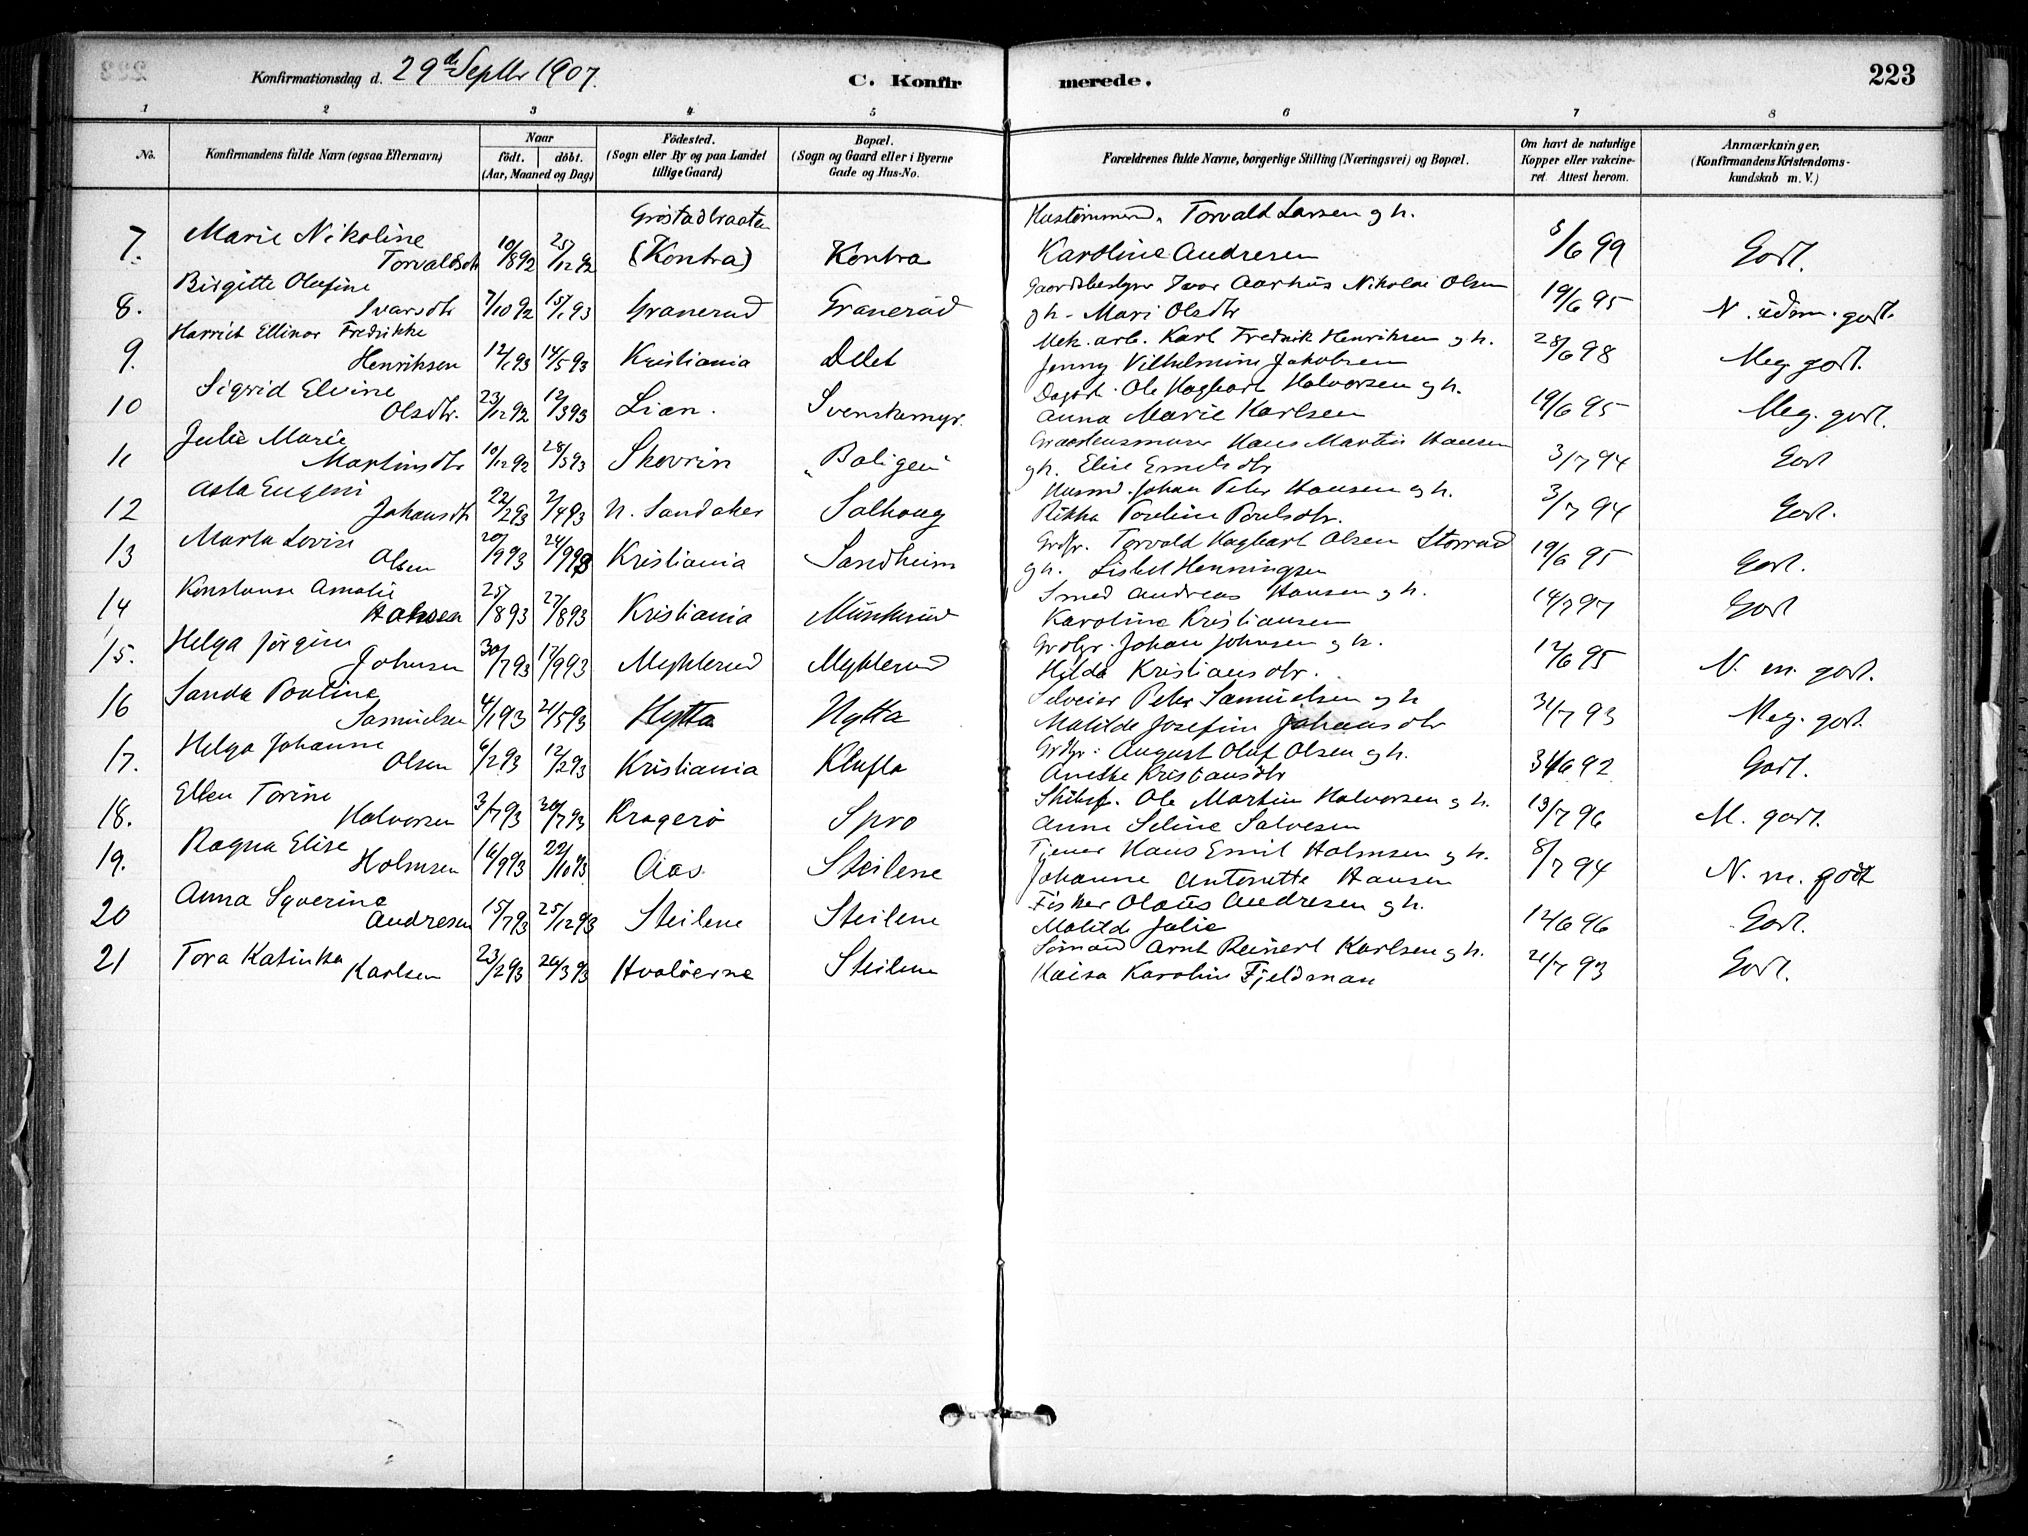 223
Konfirmationsdag d. 29de Septbr 1907.
C. Konfirmerede.
1 2 3 4 5 6 7 8
No. Konfirmandens fulde Navn (ogsaa Efternavn) Naar födt. döbt. (Aar, Maaned og Dag) Födested. (Sogn eller By og paa Landet tillige Gaard) Bopæl. (Sogn og Gaard eller i Byerne Gade og Hus-No. Forældrenes fulde Navne, borgerlige Stilling (Næringsvei) og Bopæl. Om havt de naturlige Kopper eller vakcineret. Attest herom. Anmærkninger. (Konfirmandens Kristendomskundskab m. V.)
Grøstadbraaten Torvald Larsen og h.
7. Marie Nikoline Torvaldsdtr 10/8 92 25/12 92 (Kontra) Kontra Karoline Andresen 5/6 99 Godt.
Birgitte Olufine Gaardsbestyrer Ivar Aarhus Nikolai Olsen
8. Ivarsdtr 7/10 92 15/1 93 Granerud Granerud og h. Mari Olsdtr 19/6 95 N. üdm. godt.
Harriet Ellinor Fredrikke Mek. arb. Karl Fredrik Henriksen og h.
9. Henriksen 12/1 93 14/5 93 Kristiania Delet Jenny Vilhelmine Jakobsen 28/6 98 Meg. godt.
Sigrid Elvine Ole Hagbart Halvorsen og h.
10 Olsdtr. 23/12 92 12/3 93 Lian. Svenskemyr. Anna Marie Karlsen 19/6 95 Meg. godt.
Julie Marie Hans Martin Hansen
11 Martinsdtr 10/12 92 28/3 93 Skovrin Boligen og h. Elise Emilsdtr 3/7 94 Godt
Asta Eugeni Husmd. Johan Peter Hansen og h.
12 Johansdtr 22/2 93 2/4 93 N. Sandaker Solhoug Rikka Pouline Poulsdtr. 3/7 94 Godt.
Marta Lovise Grdbr. Torvald Hagbart Olsen Storrud
13 Olsen 20/9 93 24/9 93 Kristiania Sandheim og h. Lisbet Henningsen 19/6 95 Godt.
Konstanse Amalie Smed Andreas Hansen og h.
14 Hansen 25/1 893 27/8 93 Kristiania Münkerud Karoline Kristiansen 14/7 97 Godt
Helga Jørgine Grdbr. Johan Johnsen og h.
15. Johnsen 30/7 93 17/9 93 Myklerud Myklerud Hilda Kristiansdtr. 12/6 95 N. m. godt.
Sanda Pouline Selveier Peter Samuelsen og h
16 Samüelsen 4/1 93 21/5 93 Hytta Hytta Matilde Josefine Johansdtr 31/7 93 Meg. godt.
Helga Johanne Grdbr. August Oluf Olsen og h.
17. Olsen 6/2 93 12/2 93 Kristiania Klufta Anethe Kristiansdtr 31/6 92 Godt.
Ellen Torine Skibsf. Ole Martin Halvorsen og h.
18. Halvorsen 3/7 93 30/7 93 Kragerö Spro Anne Seline Salvesen 13/7 96 M. godt.
Ragna Elise Tjener Hans Emil Holmsen og h.
19. Holmsen 16/9 93 22/10 93 Aas. Steilene Johanne Antonette Hansen 8/7 94 N. m. godt
Anna Syverine Fisker Olaus Andresen og h.
20 Andresen 15/7 93 25/12 93 Steilene Steilene Matilde Julie 12/6 96 Godt.
Tora Katinka Sömand Arnt Reinert Karlsen og h.
21 Karlsen 23/2 93 26/3 93 Hvalöerne Steilene Kaisa Karoline Fjeldman 21/7 93 Godt.